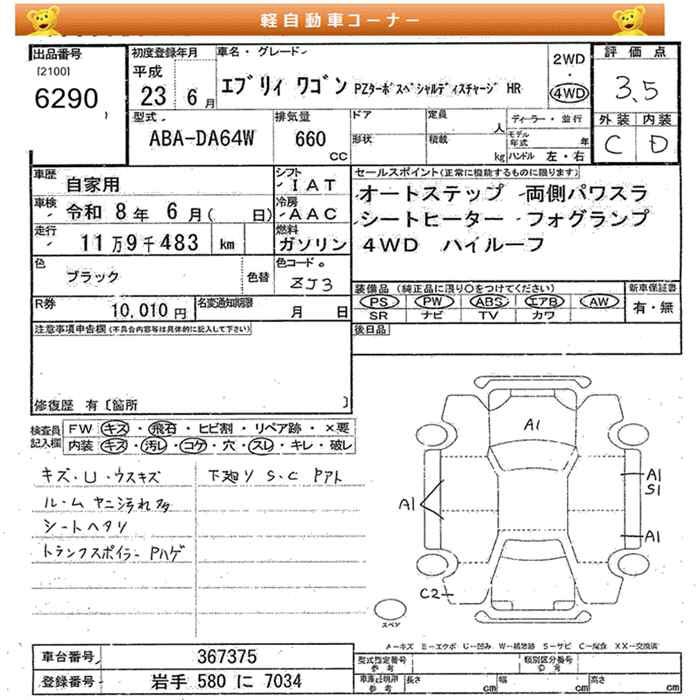 軽自動車コーナー
出品番号
[2100]
6290
初度登録年月
平成
23 6 月
車名・グレード
エブリィ ワゴン PZターボスペシャルディスチャージ HR
2WD
・
4WD
評価点
3.5
外装 内装
C D
型式
ABA-DA64W
排気量
660
CC
ドア
形状
定員
人
積載
kg
ディーラー・並行
モデル年式 年
ハンドル 左・右
車歴
自家用
シフト
IAT
車検
令和 8年 6月( 日)
冷房
AAC
走行
11万9千483 km
燃料
ガソリン
色
ブラック
色替
色コード
ZJ3
R券
10,010円
名変通知期限
月 日
セールスポイント(正常に機能するものに限ります)
オートステップ 両側パワスラ
シートヒーター フォグランプ
4WD ハイルーフ
装備品(純正品に限り○をつけてください)
PS PW ABS エアB AW
SR ナビ TV カワ
新車保証書
有・無
後日品
注意事項申告欄(不具合内容等は具体的に記入して下さい)
修復歴 有〔箇所 〕
検査員記入欄
FW キズ・飛石・ヒビ割・リペア跡・×要
内装 キズ・汚レ・コゲ・穴・スレ・キレ・破レ
キズ・U・ウスキズ
ルームヤニ汚れ多
シートヘタリ
トランクスポイラーPハゲ
下廻り S、C Pアト
A1
A1
A1
S1
A1
C2
スペア
A=キズ E=エクボ U=凹み W=補修跡 S=サビ C=腐食 XX=交換済
車台番号
367375
登録番号
岩手 580 に 7034
型式指定番号
参考
類別区分番号
参考
車検証明用
参考
長さ cm
幅 cm
高さ cm